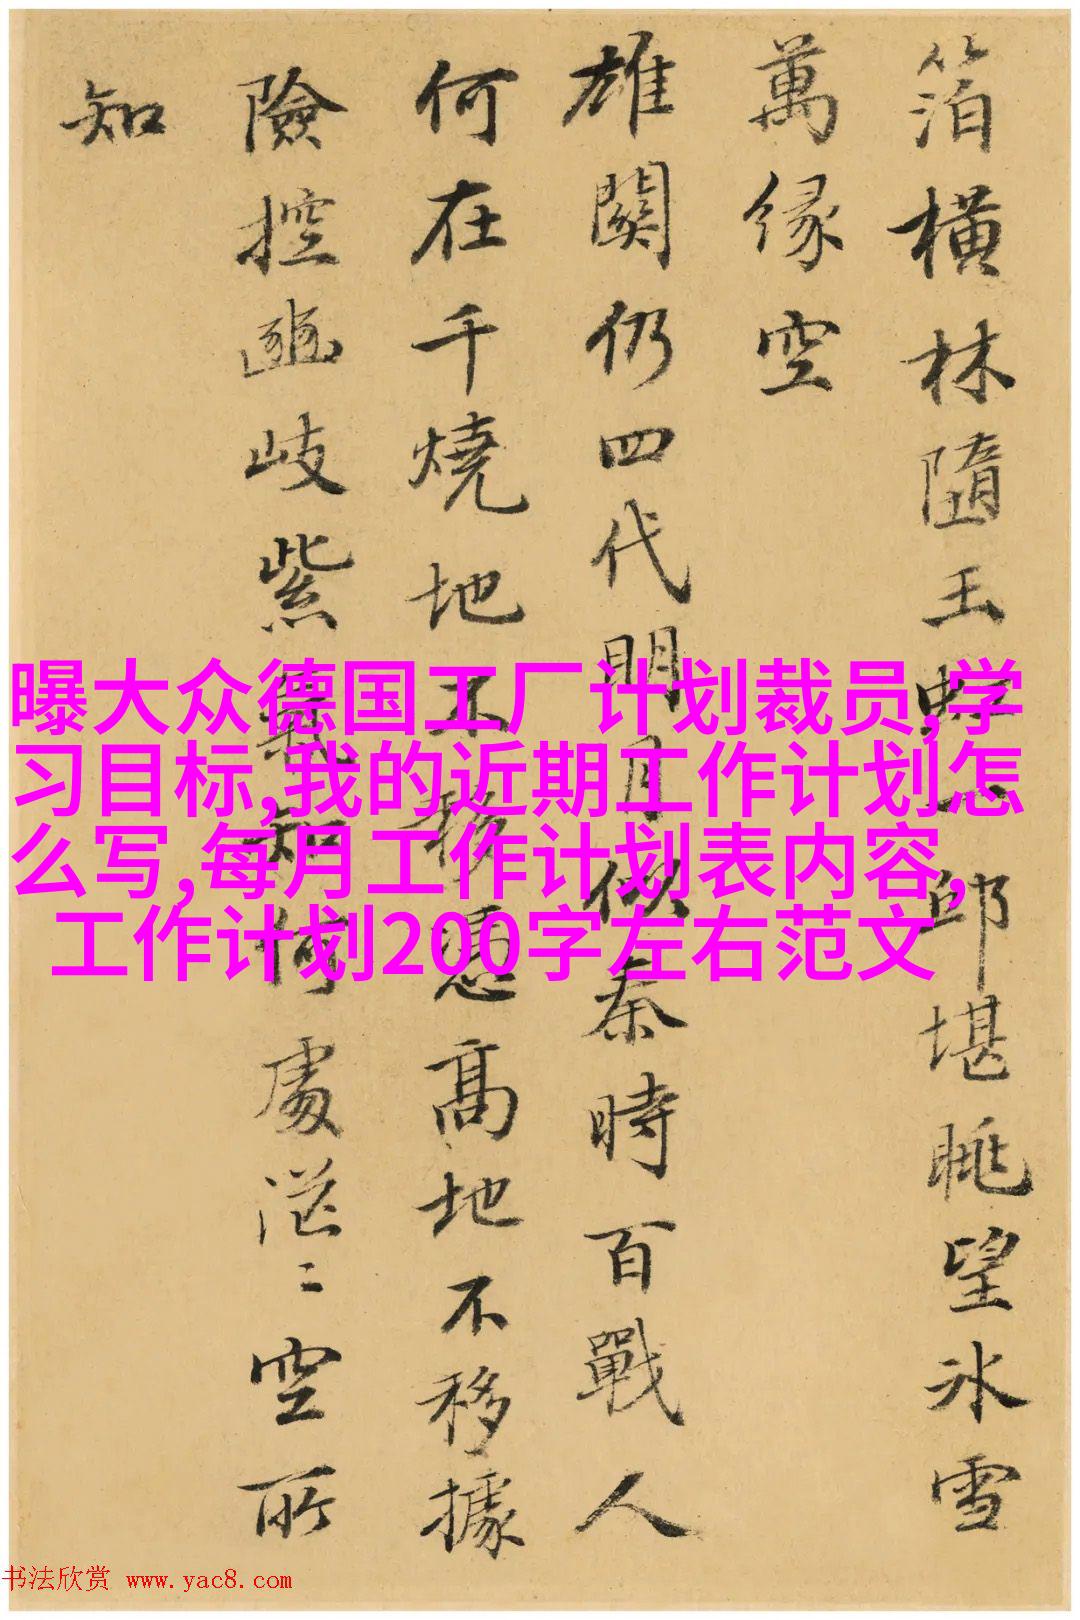 箔橫林隨玉虹邱堪眺望冰雪
萬缘空
雄関仍四代明月似秦時百戰人
何在千燒地不移憑高地不移據
險控豳岐紫氣知何處茫〻空所
知
曝大众德国工厂计划裁员,学
习目标,我的近期工作计划怎
么写,每月工作计划表内容,
工作计划200字左右范文
书法欣赏 www.yac8.com